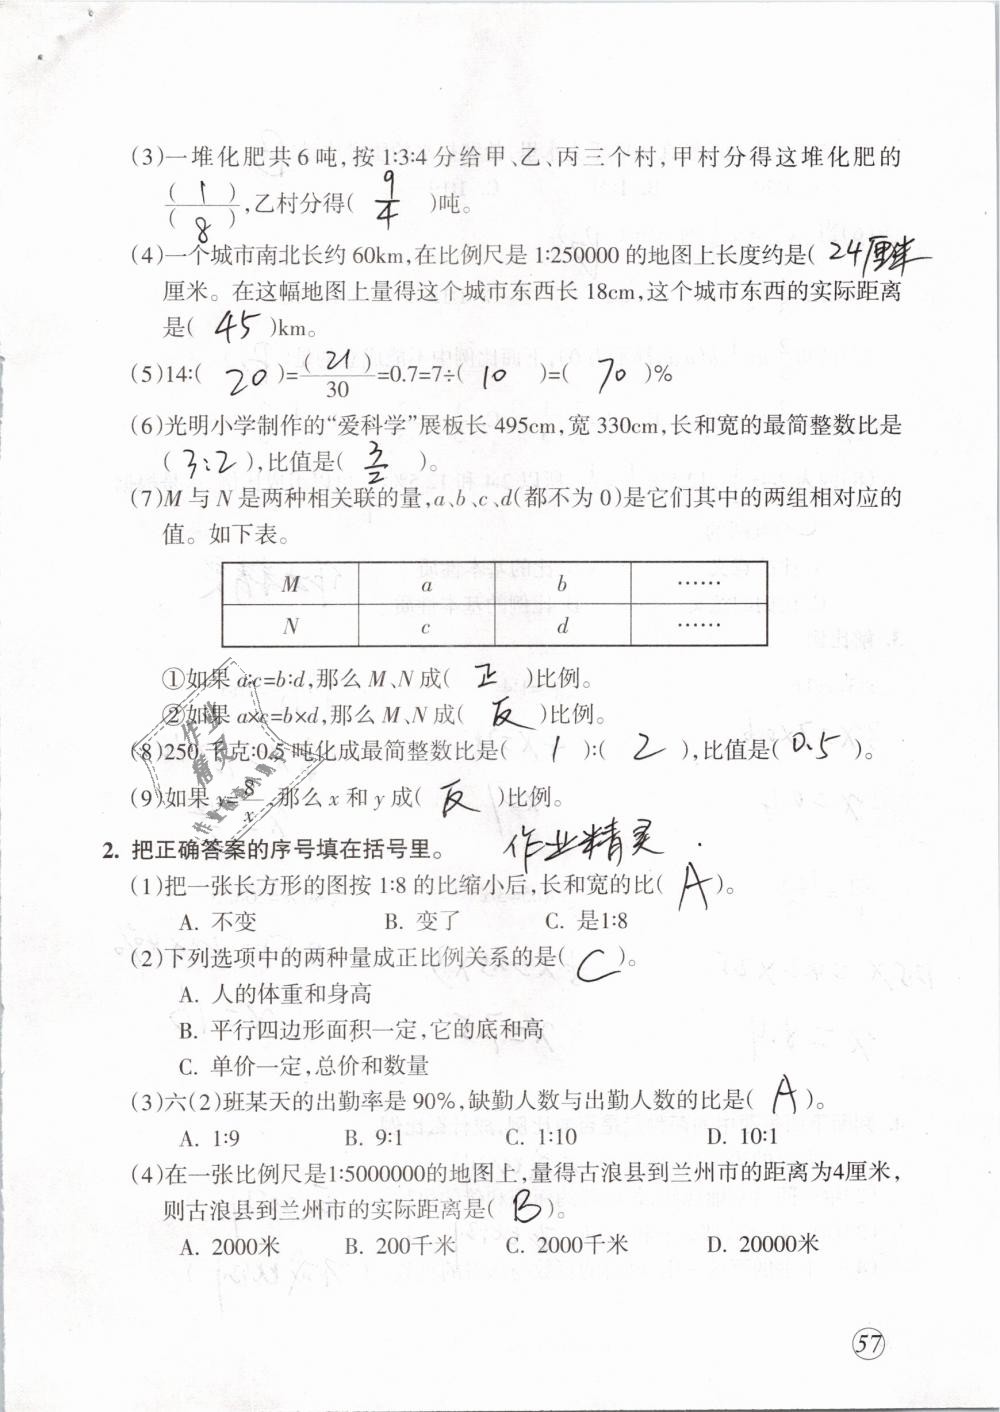 (3)一堆化肥共6吨,按1:3:4分给甲、乙、丙三个村,甲村分得这堆化肥的
( 1 )
( 8 ) ,乙村分得( 9/4 )吨。
(4)一个城市南北长约60km,在比例尺是1:250000的地图上长度约是( 24厘米
厘米。在这幅地图上量得这个城市东西长18cm,这个城市东西的实际距离
是( 45 )km。
(5)14:( 20 )=( 21 )/30=0.7=7÷( 10 )=( 70 )%
(6)光明小学制作的“爱科学”展板长495cm,宽330cm,长和宽的最简整数比是
( 3:2 ),比值是( 3/2 )。
(7)M与N是两种相关联的量,a、b、c、d(都不为0)是它们其中的两组相对应的
值。如下表。
M a b ……
N c d ……
①如果a:c=b:d,那么M、N成( 正 )比例。
②如果a×c=b×d,那么M、N成( 反 )比例。
(8)250千克:0.5吨化成最简整数比是( 1 ):( 2 ),比值是( 0.5 )。
(9)如果 8/x,那么x和y成( 反 )比例。
作业精灵
2. 把正确答案的序号填在括号里。 作业精灵
(1)把一张长方形的图按1:8的比缩小后,长和宽的比( A )。
A. 不变 B. 变了 C. 是1:8
(2)下列选项中的两种量成正比例关系的是( C )。
A. 人的体重和身高
B. 平行四边形面积一定,它的底和高
C. 单价一定,总价和数量
(3)六(2)班某天的出勤率是90%,缺勤人数与出勤人数的比是( A )。
A. 1:9 B. 9:1 C. 1:10 D. 10:1
(4)在一张比例尺是1:5000000的地图上,量得古浪县到兰州市的距离为4厘米,
则古浪县到兰州市的实际距离是( B )。
A. 2000米 B. 200千米 C. 2000千米 D. 20000米
57